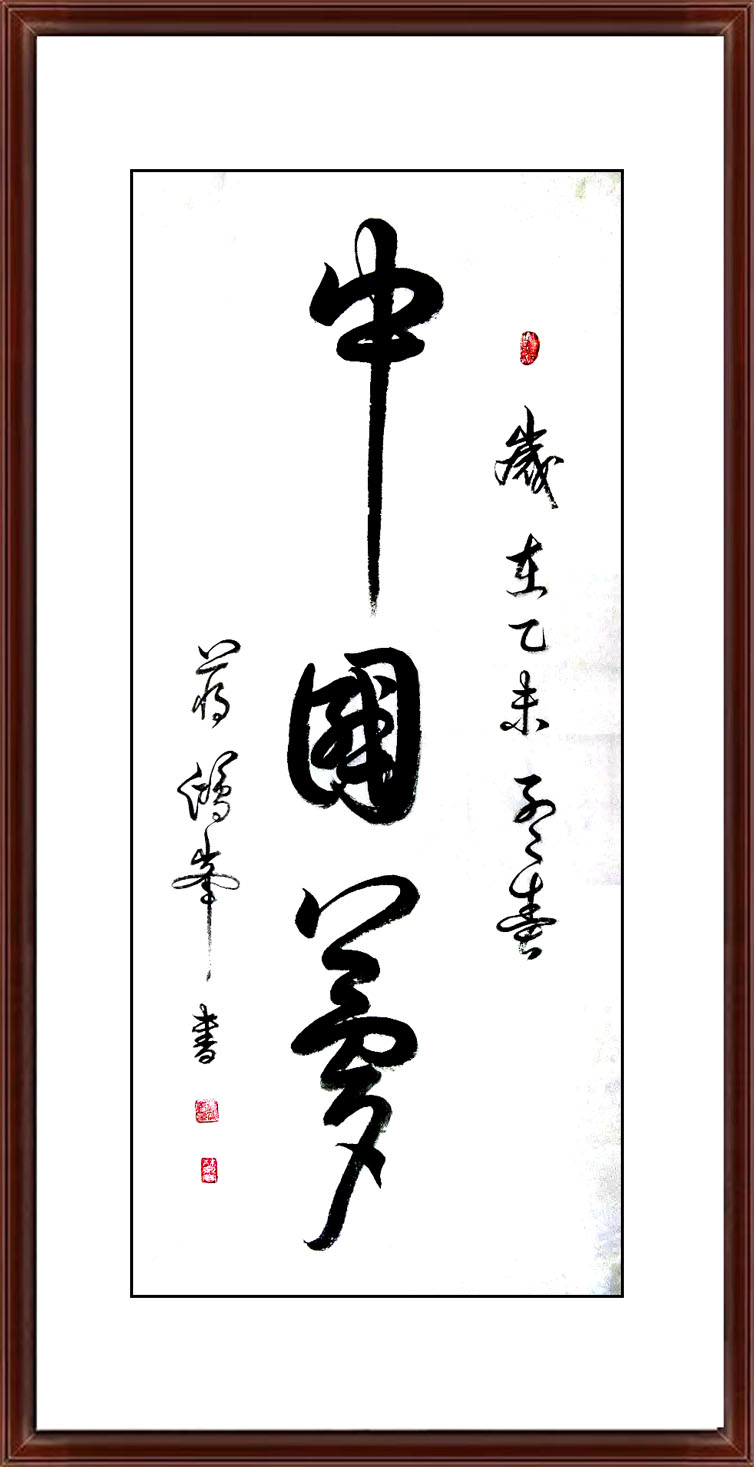 歲在乙未孟春
中國夢
蔣鴻峯書